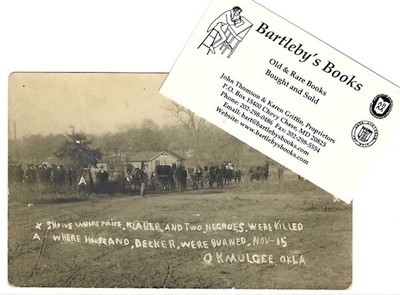 Bartleby's Books
Old & Rare Books
Bought and Sold
John Thomson & Karen Griffin, Proprietors
P.O. Box 15400 Chevy Chase, MD 20825
Phone: 202-298-0486 Fax: 202-298-5554
Email: bart@bartlebysbooks.com
Website: www.bartlebysbooks.com
A
X SHOWS WHERE PRICE, KLABER, AND TWO NEGROES, WERE KILLED
A WHERE HOUSE AND, DECKER, WERE BURNED, NOV-15
OKMULGEE OKLA